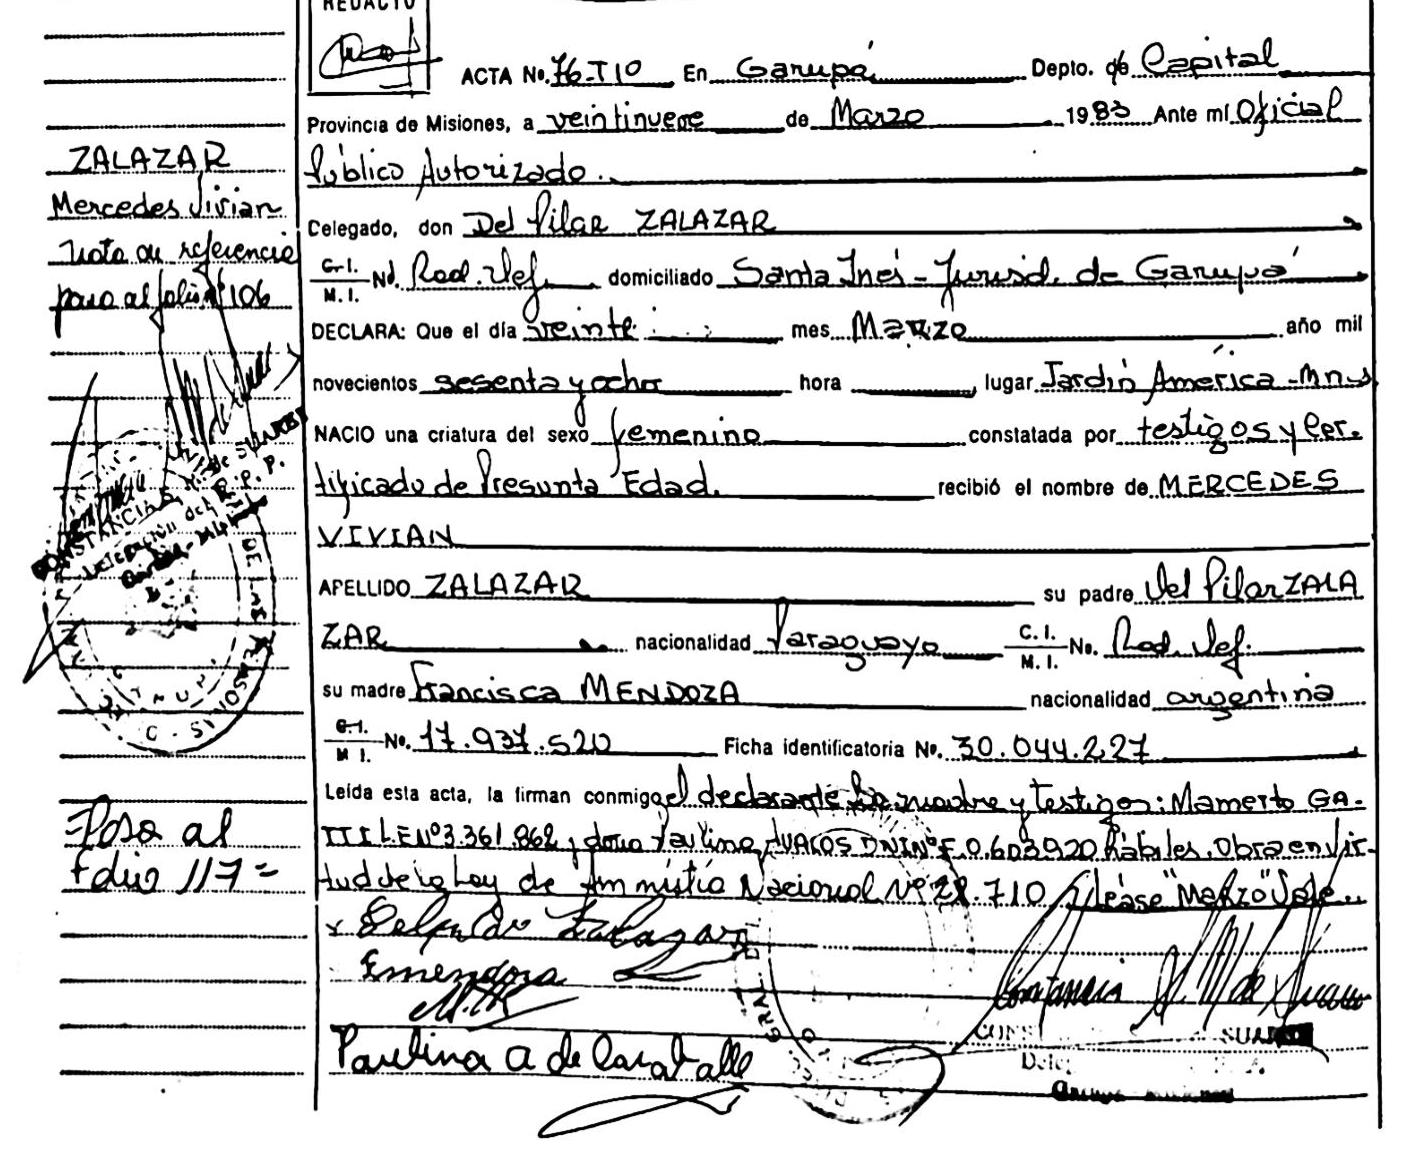 REDACTO
ACTA No. 76-T10 En Garupá Depto. de Capital
Provincia de Misiones, a veintinueve de Marzo 1983 Ante mí Oficial
Público Autorizado.
Celegado, don Del Pilar ZALAZAR
C.I. M.I. No. Rad. Def. domiciliado Santa Inés - Jurisd. de Garupá
DECLARA: Que el día veinte mes Marzo año mil
novecientos sesenta y ocho hora lugar Jardín América - Mnes
NACIO una criatura del sexo femenino constatada por testigos y Cer.
tificado de Presunta Edad. recibió el nombre de MERCEDES
VIVIAN
APELLIDO ZALAZAR su padre Del Pilar ZALA
ZAR nacionalidad Paraguayo C.I. M.I. No. Rad. Def.
su madre Francisca MENDOZA nacionalidad argentina
C.I. M I. No. 17.937.520 Ficha identificatoria No. 30.044.227
Leída esta acta, la firman conmigo el declarante la madre y Testigos: Mamerto GA-
TTI L E Nº 3.361.862 y doña Paulina AVALOS DNI Nº F. 0.603920 hábiles. Obra en vir-
tud de la Ley de Amnistia Nacional Nº 22.710 Léase "Marzo" Vale..
Delpido Zalazar
Fmendoza
Paulina A de Caravalle
Constancia S. M de Suarez
CONS SUAREZ
Dele
ZALAZAR
Mercedes Vivian
Nota de referencia
paso al folio nº 106
CONSTANCIA S. M. de SUAREZ
Delegación del R. P. P.
DE LAS PERSONAS
GRAL. D
Pasa al
Folio 117=